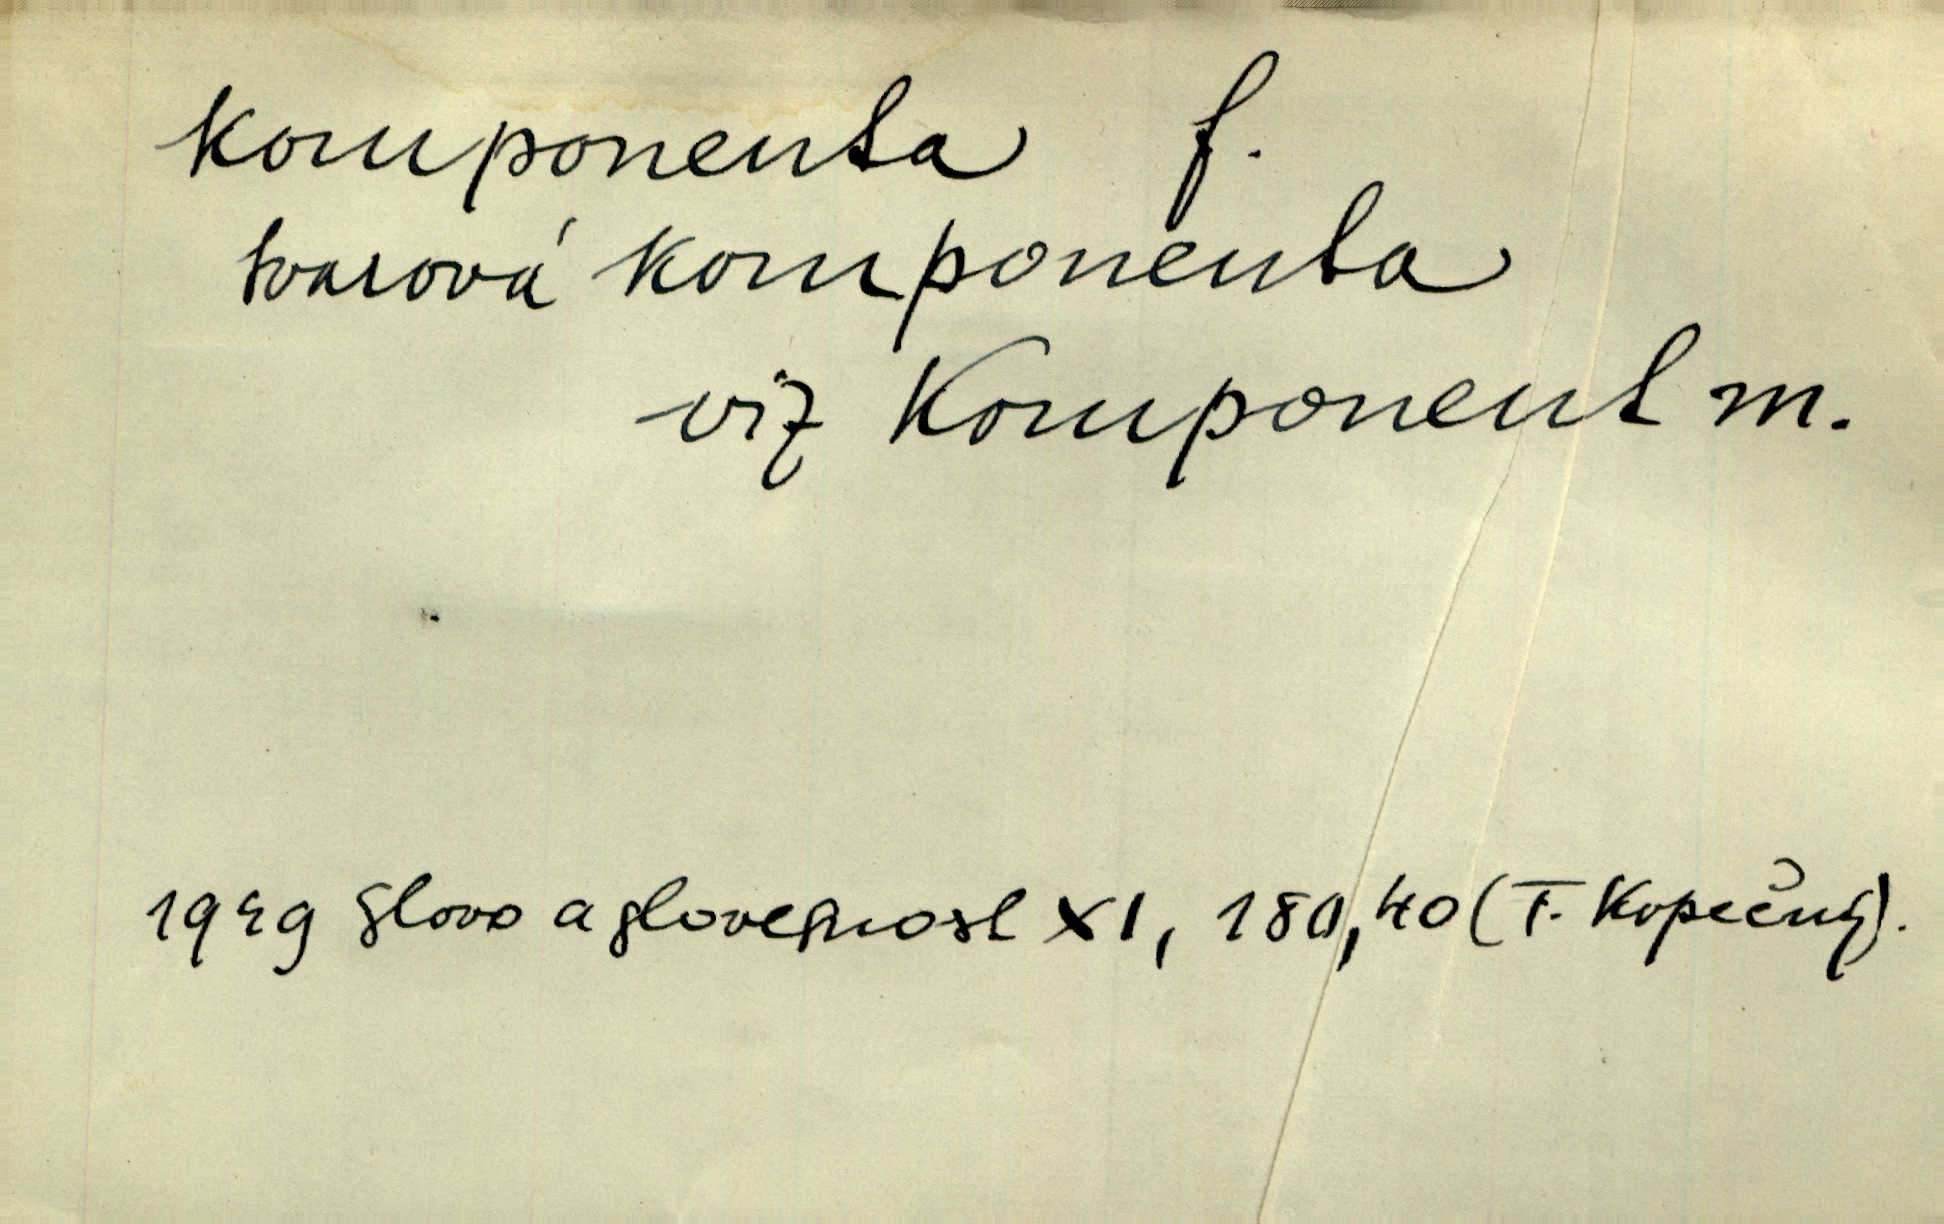 komponenta f.
tvarová komponenta
viz Komponent m.
1949 Slovo a slovesnost XI, 180,40 (F. Kopečný).